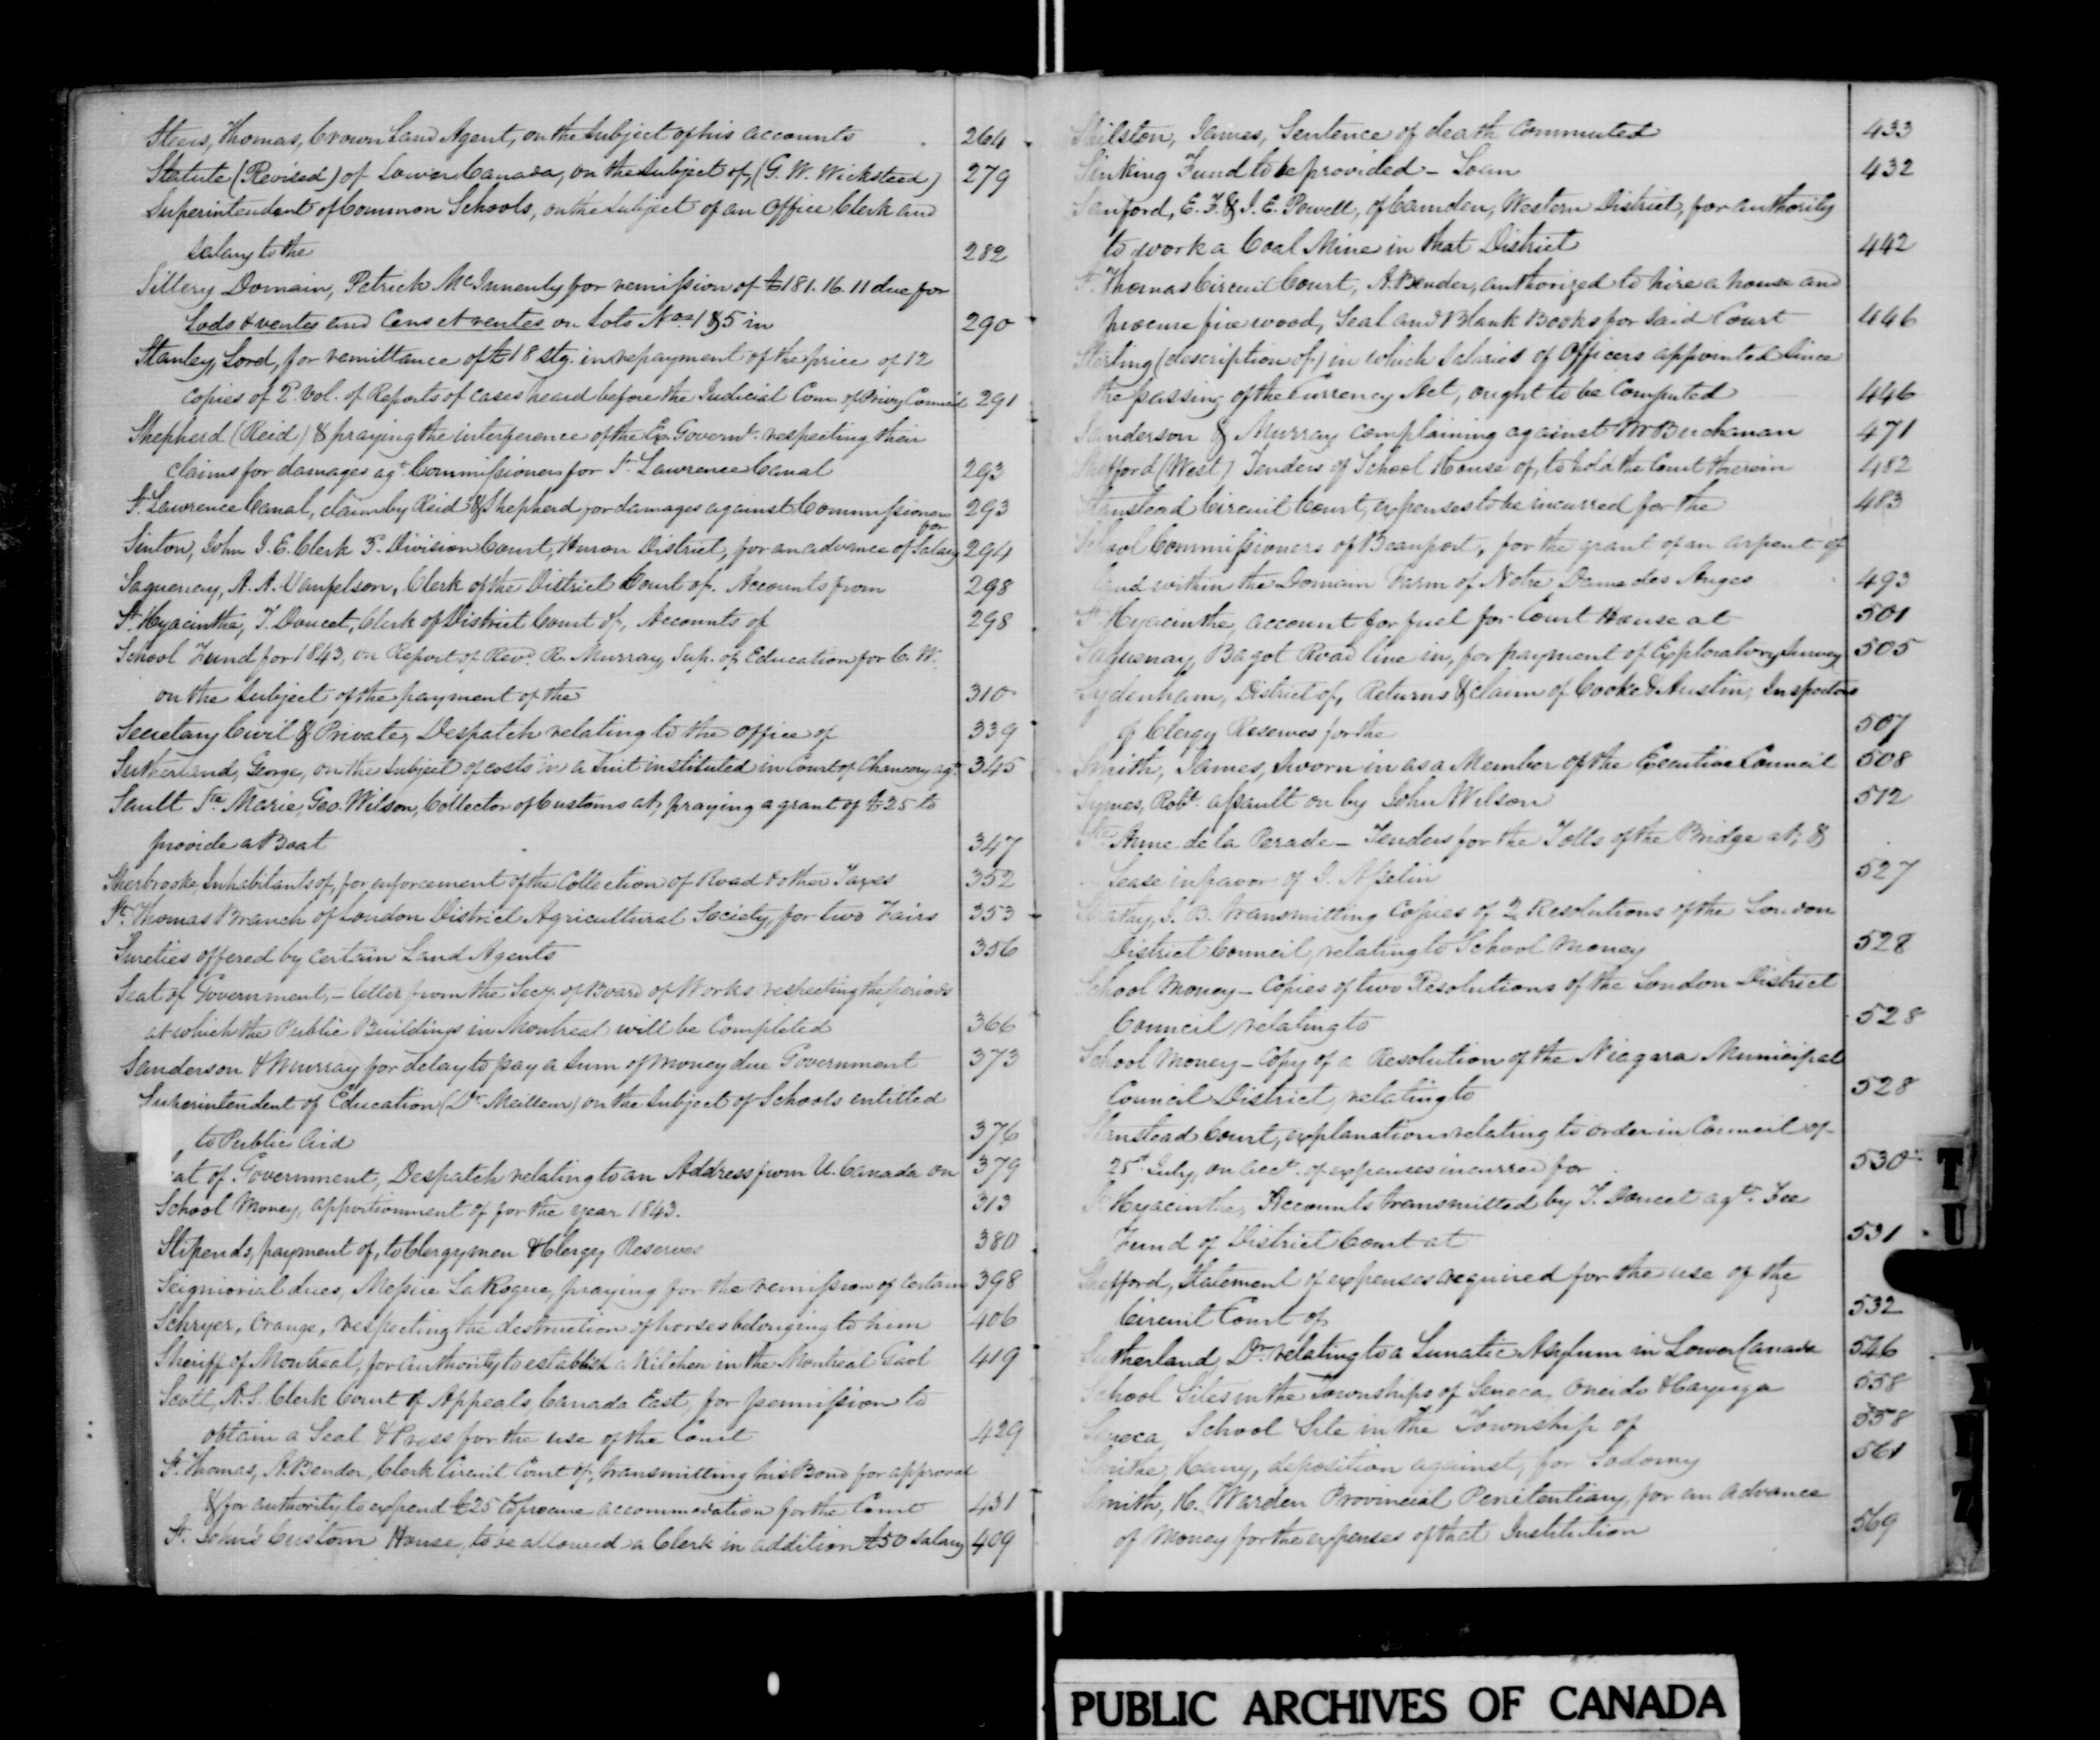 Steers, Thomas, Crown Land Agent, on the Subject of his accounts 264
Statute (Revised) of Lower Canada, on the Subject of, (G. W. Wicksteed) 279
Superintendent of Common Schools, on the Subject of an Office Clerk and
Salary to the 282
Sillery Domain, Patrick McInnenly for remission of £181.16.11 due for
Lods & ventes and Cens et rentes on Lots Nos 1 & 5 in 290
Stanley, Lord, for remittance of £18 stg. in repayment of the price of 12
Copies of 2d. vol. of Reports of cases heard before the Judicial Com. of Privy Council 291
Shepherd (Reid) & praying the interference of the Ex. Governt. respecting their
Claims for damages agt. Commissioners for St. Lawrence Canal 293
St. Lawrence Canal, claim by Reid & Shepherd for damages against Commissioners for 293
Sinton, John I. E. Clerk 5th Division Court, Huron District, for an advance of Salary 294
Saguenay, A. A. Vanfelson, Clerk of the District Court of. Accounts from 298
St. Hyacinthe, T. Doucet, Clerk of District Court of, Accounts of 298
School Fund for 1843, on Report of Revd. R. Murray, Sup. of Education for C. W.
on the Subject of the payment of the 310
Secretary Civil & Private, Despatch relating to the Office of 339
Sutherland, George, on the Subject of costs in a Suit instituted in Court of Chancery agt. 345
Sault Ste Marie, Geo. Wilson, Collector of Customs at, praying a grant of £25 to
provide a Boat 347
Sherbrooke, Inhabitants of, for enforcement of the Collection of Road & other Taxes 352
St. Thomas Branch of London District Agricultural Society, for two Fairs 353
Sureties offered by Certain Land Agents 356
Seat of Government, - letter from the Secy. of Board of Works respecting the periods
at which the Public Buildings in Montreal will be Completed 366
Sanderson & Murray for delay to pay a Sum of Money due Government 373
Superintendent of Education (Dr. Meilleur) on the Subject of Schools entitled
to Public Aid 376
at of Government, Despatch relating to an Address from U. Canada on 379
School Money, apportionment of for the year 1843. 313
Stipends, payment of, to Clergymen & Clergy Reserves 380
Seigniorial dues, Messire LaRoque, praying for the remission of Certain 398
Schryer, Orange, respecting the destruction of horses belonging to him 406
Sheriff of Montreal, for authority to establish a Kitchen in the Montreal Gaol 419
Scott, A. S. Clerk Court of Appeals, Canada East, for permission to
obtain a Seal & Press for the use of the Court 429
St. Thomas, A. Bender, Clerk Circuit Court of, transmitting his Bond for approval
& for authority to expend £25 to procure accommodation for the Court 431
St. John's Custom House, to be allowed a Clerk in addition £50 Salary 409
Shilston, James, Sentence of death Commuted 433
Sinking Fund to be provided - Loan 432
Sanford, E. F. & I. E. Powell, of Camden, Western District, for authority
to work a Coal Mine in that District 442
St. Thomas Circuit Court, A. Bender, authorized to hire a house and
procure fire wood, Seal and Blank Books for said Court 446
Sterling (description of) in which Salaries of Officers appointed Since
the passing of the Currency Act, ought to be Computed 446
Sanderson & Murray Complaining against Mr Buchanan 471
Shefford (West) Tenders of School House of, to hold the Court therein 482
Stanstead Circuit Court, expenses to be incurred for the 483
School Commissioners of Beauport, for the grant of an arpent of
land within the Domain Farm of Notre Dame des Anges 493
St Hyacinthe, account for fuel for Court House at 501
Saguenay, Bagot Road line in, for payment of Exploratory Survey 505
Sydenham, District of, Returns & claim of Cooke & Austin, Inspectors
of Clergy Reserves for the 507
Smith, James, Sworn in as a Member of the Executive Council 508
Symes, Robt. assault on by John Wilson 512
Ste Anne de la Perade - Tenders for the Tolls of the Bridge at, &
Lease in favor of I. Asselin 527
Strathy, I. B. transmitting Copies of 2 Resolutions of the London
District Council, relating to School Money 528
School Money - Copies of two Resolutions of the London District
Council, relating to 528
School Money - Copy of a Resolution of the Niagara Municipal
Council District, relating to 528
Stanstead Court, explanation relating to order in Council of
25th July, on acct. of expenses incurred for 530
St Hyacinthe, Accounts transmitted by T. Doucet agt. Fee
Fund of District Court at 531
Shefford, Statement of expenses required for the use of the
Circuit Court of 532
Sutherland, Dr. relating to a Lunatic Asylum in Lower Canada 546
School Sites in the Townships of Seneca, Oneida & Cayuga 558
Seneca, School Site in the Township of 558
Smithe, Henry, deposition against, for Sodomy 561
Smith, H. Warden Provincial Penitentiary, for an advance
of Money for the expenses of that Institution 569
T
U
PUBLIC ARCHIVES OF CANADA